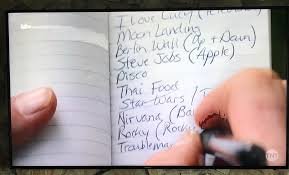 I Love Lucy (Television
Moon Landing
Berlin Wall (Up + Down)
Steve Jobs (Apple)
Disco
Thai Food
Star Wars /
Nirvana (Ba
Rocky (Rock
Troublema